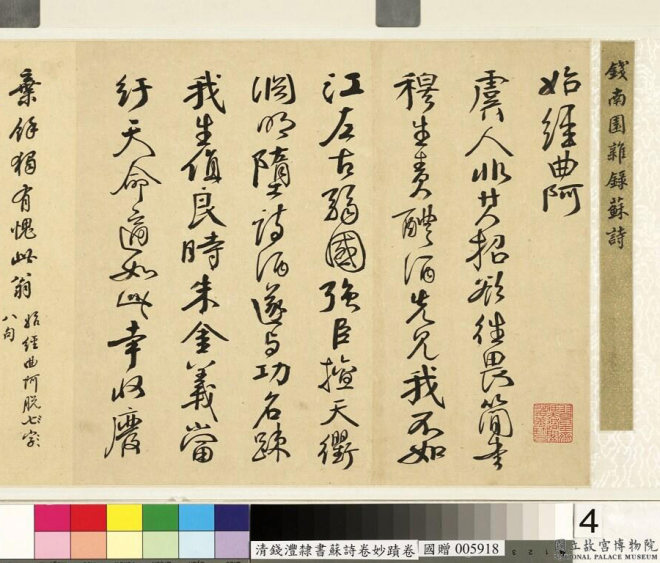 錢南園雜錄蘇詩
始經曲阿
虞人非其招欲往畏簡書
穆生責醴酒先見我不如
江左古弱國強臣擅天衢
淵明墮詩酒遂與功名疎
我生值良時朱金義當
紆天命適如此幸收廢
棄餘獨有愧此翁
始經曲阿脫七字
八句
4
清錢灃隸書蘇詩卷妙蹟卷
國贈 005918
國立故宮博物院
NATIONAL PALACE MUSEUM